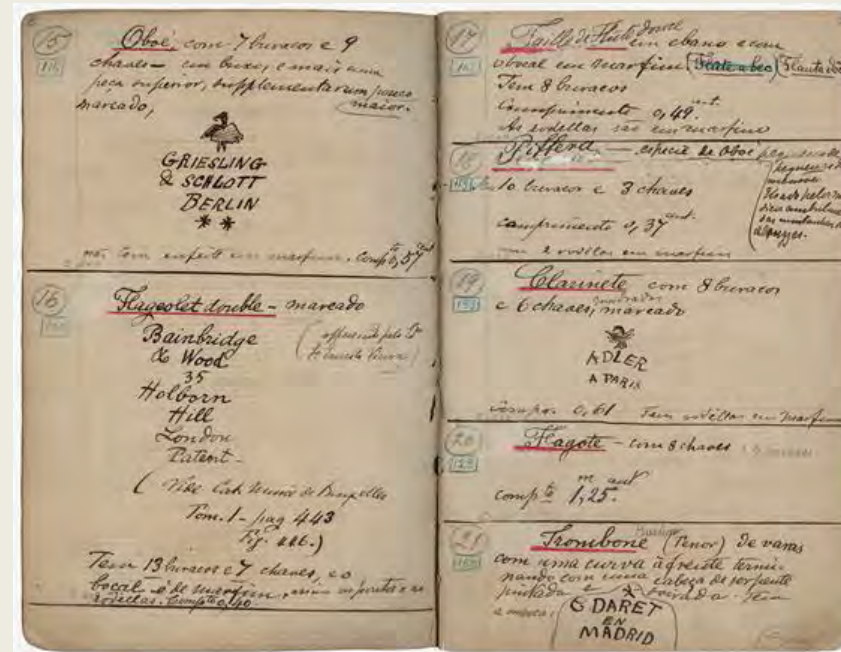 15
Oboé, com 7 buracos e 9
chaves – em buxo, e mais uma
peça superior, supplementar um pouco
maior.
marcado,
GRIESLING
& SCHLOTT
BERLIN
* *
com enfeite em marfim. Compto 0,57
16
Flageolet double – marcado
Bainbridge
& Wood
35
Holborn
Hill
London
Patent –
(offerecido pelo
( Vide Cat. Museu de Bruxelles
Tom. 1 – pag 443
Fig. 446.)
Tem 13 buracos e 7 chaves, e o
bocal é de marfim,
rodellas. Compto 0,40
17
Taille de Flute douce em ebano e com
o bocal em marfim (Flute a bec) Flauta
Tem 8 buracos
Comprimento 0,49.
As rodellas são em marfim
18
Piffera – especie de Oboé
10 buracos e 3 chaves
comprimento 0,37
com 2 rodellas em marfim
19
Clarinete com 8 buracos
e 6 chaves, quadradas marcado
ADLER
A PARIS
Compo. 0,61 Tem rodellas em marfim
20
Fagote – com 8 chaves
compto 1,25.
21
Trombone (Tenor) de varas
com uma curva á frente termi-
nando com uma cabeça de serpente
pintada e doirada. Tem
a marca:
G DARET
EN
MADRID